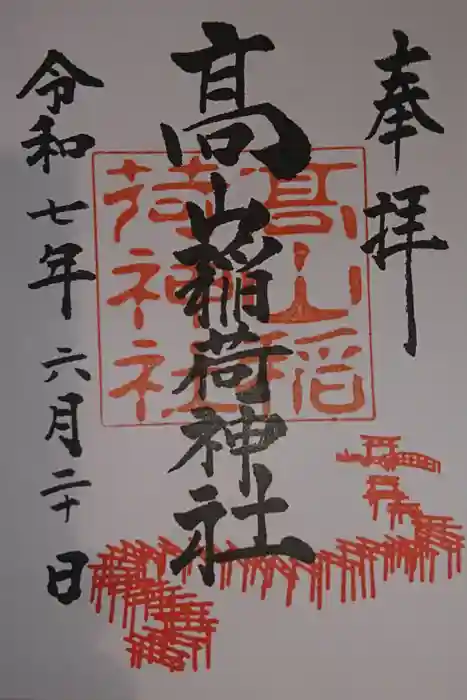 奉拝
高山稲荷神社
髙山稲
荷神社
令和七年六月二十日